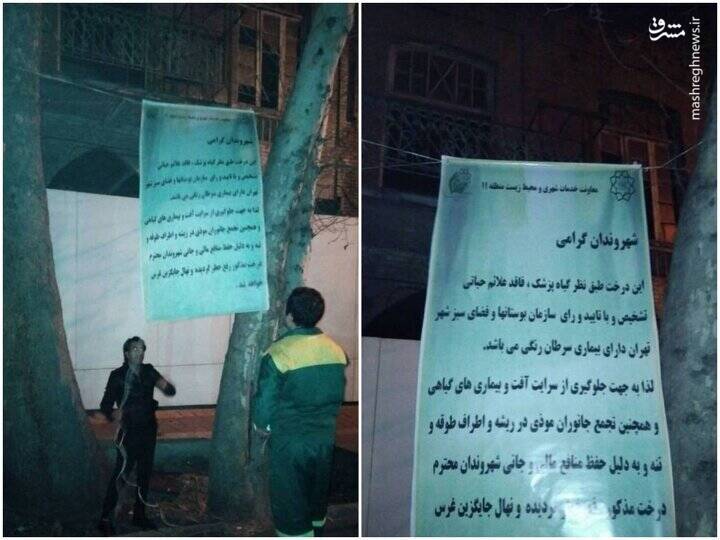 معاونت خدمات شهری و محیط زیست منطقه ۱۱
شهروندان گرامی
این درخت طبق نظر گیاه پزشک ، فاقد علائم حیاتی
تشخیص و با تایید و رای سازمان بوستانها و فضای سبز شهر
تهران دارای بیماری سرطان رنگی می باشد.
لذا به جهت جلوگیری از سرایت آفت و بیماری های گیاهی
و همچنین تجمع جانوران موذی در ریشه و اطراف طوقه و
تنه و به دلیل حفظ منافع مالی و جانی شهروندان محترم
درخت مذکور رفع خطر گردیده و نهال جایگزین غرس
خواهد شد.
معاونت خدمات شهری و محیط زیست منطقه ۱۱
شهروندان گرامی
این درخت طبق نظر گیاه پزشک ، فاقد علائم حیاتی
تشخیص و با تایید و رای سازمان بوستانها و فضای سبز شهر
تهران دارای بیماری سرطان رنگی می باشد.
لذا به جهت جلوگیری از سرایت آفت و بیماری های گیاهی
و همچنین تجمع جانوران موذی در ریشه و اطراف طوقه و
تنه و به دلیل حفظ منافع مالی و جانی شهروندان محترم
درخت مذکور گردیده و نهال جایگزین غرس
مشرق
mashreghnews.ir